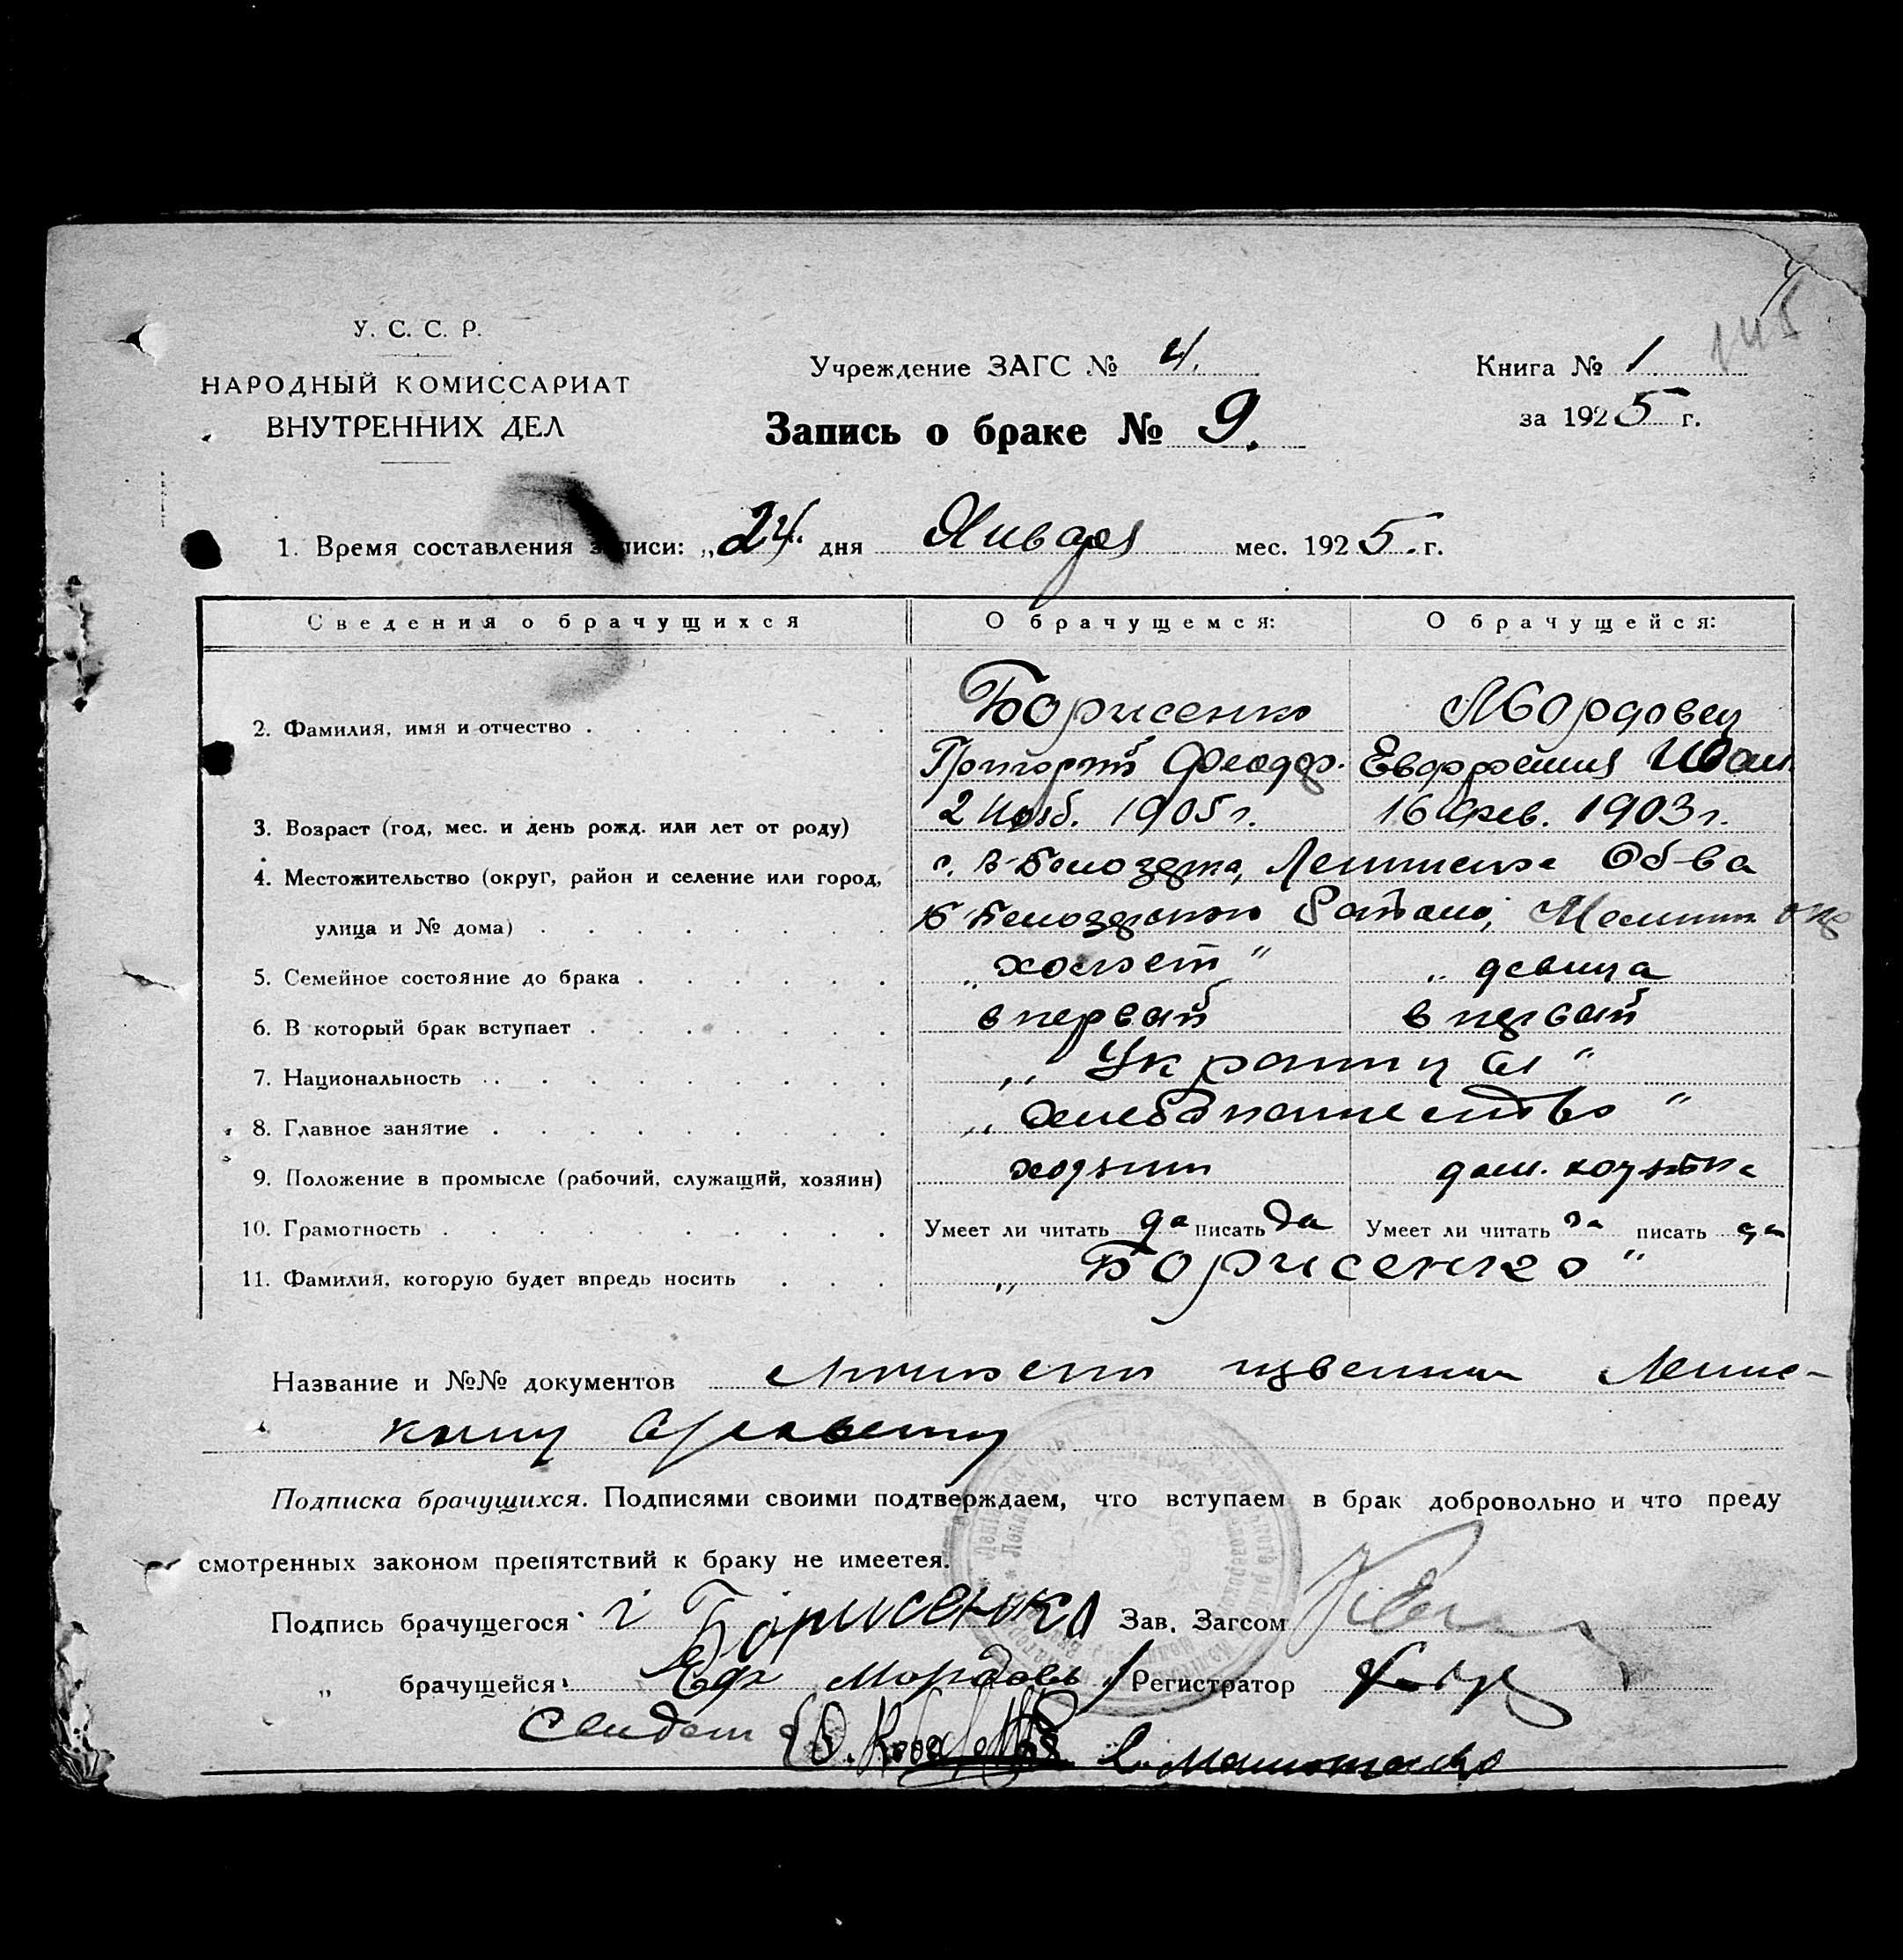 У. С. С. Р.
НАРОДНЫЙ КОМИССАРИАТ
ВНУТРЕННИХ ДЕЛ
Учреждение ЗАГС № 4.
Запись о браке № 9.
Книга № 1
145
за 1925 г.
1. Время составления записи: „24. дня Января мес. 1925. г.
Сведения о брачущихся О брачущемся: О брачущейся:
2. Фамилия, имя и отчество Борисенко Мордовец
Григорий Феодор. Евфремия Иван
3. Возраст (год, мес. и день рожд. или лет от роду) 2 Нояб. 1905 г. 16 Фев. 1903 г.
4. Местожительство (округ, район и селение или город, с. В-Белозерка, Ленинска Об-ва
улица и № дома) Б-Белозерского
5. Семейное состояние до брака „холост" „девица
6. В который брак вступает в первый в первый
7. Национальность „Украинцы"
8. Главное занятие „хлебопашество"
9. Положение в промысле (рабочий, служащий, хозяин) хозяин дом. хозяйка
10. Грамотность Умеет ли читать да писать да Умеет ли читать да писать да
11. Фамилия, которую будет впредь носить „Борисенко"
Название и №№ документов личности Ленинс-
ким
Подписка брачущихся. Подписями своими подтверждаем, что вступаем в брак добровольно и что преду
смотренных законом препятствий к браку не имеется.
Подпись брачущегося Г Борисенко Зав. Загсом
„ брачущейся Ефр Мордовь Регистратор
Свидет